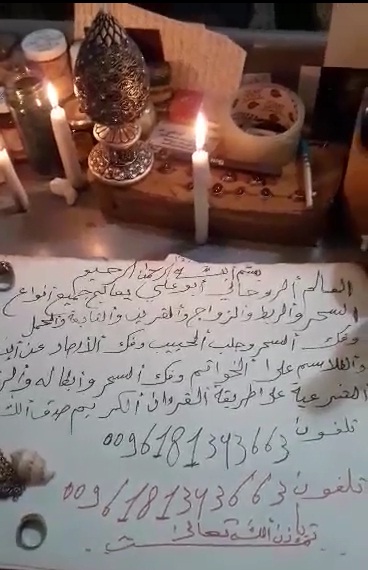 بسم الله الرحمن الرحيم
العالم الروحاني أبو علي يعالج جميع أنواع
السحر والربط والزواج والقرين والتابعة والحمل
وفك السحر وجلب الحبيب وفك الأرصاد عن
والطلاسم على الخواتم وفك السحر وأبطاله
الشرعية على طريقة القرءان الكريم صدق الله
تلفون
009618134 3663
تلفون 0096181343663
بإذن الله تعالى